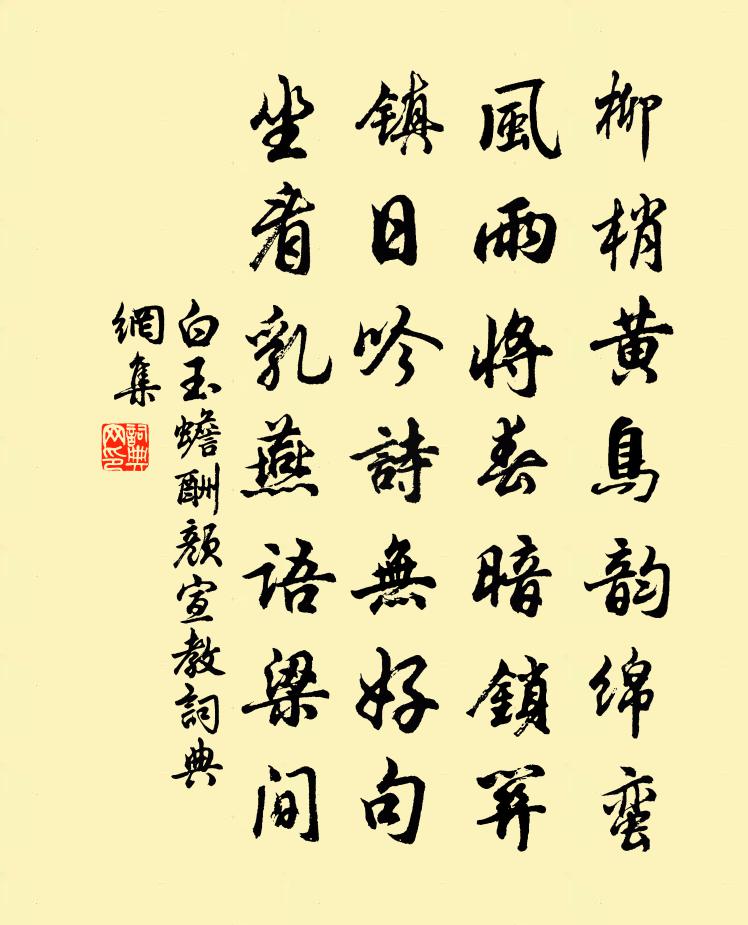 柳梢黄鳥韵绵蛮
風雨將春暗鎖关
鎮日吟詩無好句
坐看乳燕語梁间
白玉蟾酬顏宣教詞典
網集
詞典
网印